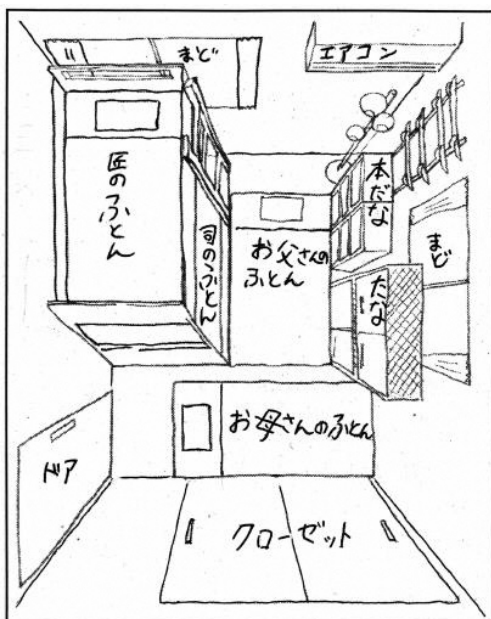 まど
エアコン
匠のふとん
司のふとん
お父さんの
ふとん
本だな
まど
たな
お母さんのふとん
ドア
クローゼット